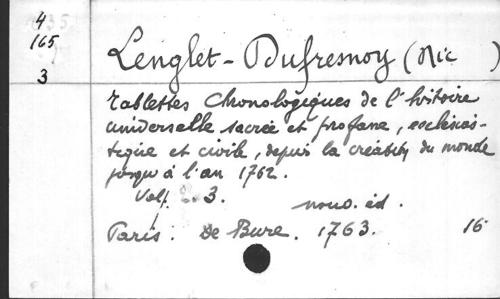 4
165
3
Lenglet-Dufresnoy (Nic )
Tablettes Chronologiques de l'histoire
universelle sacrée et profane, ecclésias-
tique et civile, depuis la création du monde
jusqu'à l'an 1762.
Vol. 3.
nouv. éd.
Paris. De Bure. 1763. 16